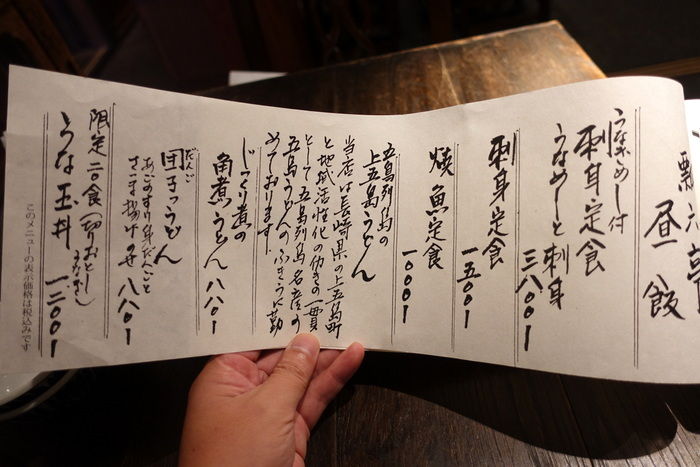 昼飯
うなぎめし付
刺身定食
うなめしと刺身
三八〇〇一
刺身定食
一五〇〇一
焼魚定食
一〇〇〇一
五島列島の
上五島うどん
当店は長崎県の上五島町
と地域活性化の働きの一貫
として五島列島名産の
五島うどんのふきうに勤
めております!
じっくり煮の
角煮うどん 八八〇一
だんご
団子うどん
あごのすり身だんごと
さつま揚げのせ 八八〇一
限定二〇食(切りおとし
うなぎ)
うな玉丼 一二〇〇一
このメニューの表示価格は税込みです